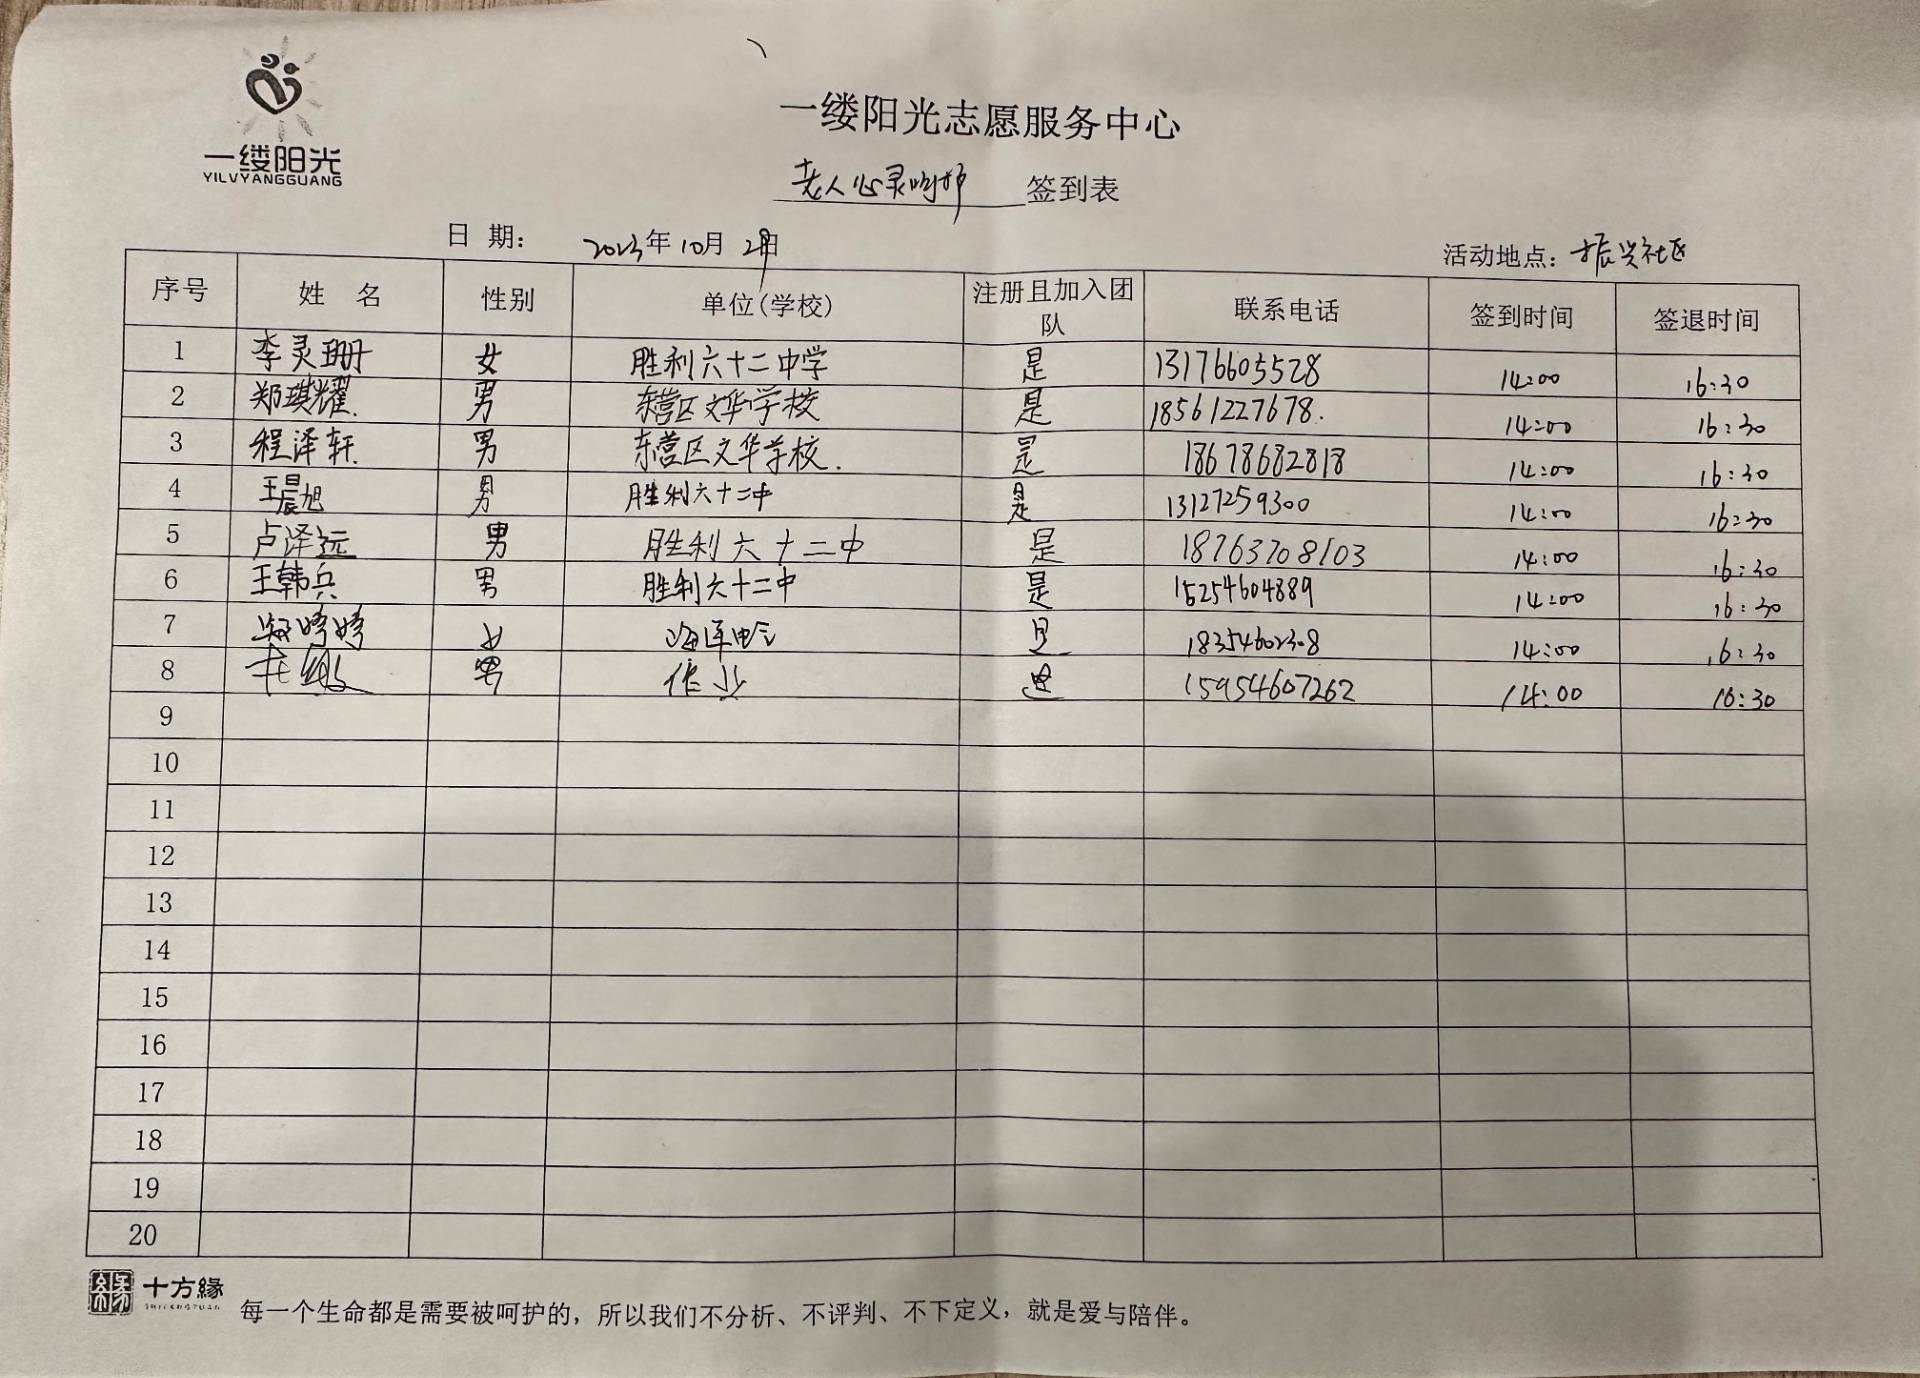 一缕阳光
YILVYANGGUANG
一缕阳光志愿服务中心
老人心灵呵护 签到表
日 期： 2023年10月29日 活动地点：振兴社区
序号 姓 名 性别 单位(学校) 注册且加入团队 联系电话 签到时间 签退时间
1 李灵珊 女 胜利六十二中学 是 13176605528 14:00 16:30
2 郑琪耀. 男 东营区文华学校 是 18561227678. 14:00 16:30
3 程泽轩. 男 东营区文华学校. 是 18678682818 14:00 16:30
4 王晨旭 男 胜利六十二中 是 13127259300 14:00 16:30
5 卢泽远 男 胜利六十二中 是 18763708103 14:00 16:30
6 王韩兵 男 胜利六十二中 是 15254604889 14:00 16:30
7 婷婷 女 是 18354602308 14:00 16:30
8 男 作业 是 15954607262 14:00 16:30
9
10
11
12
13
14
15
16
17
18
19
20
十方緣
每一个生命都是需要被呵护的，所以我们不分析、不评判、不下定义，就是爱与陪伴。